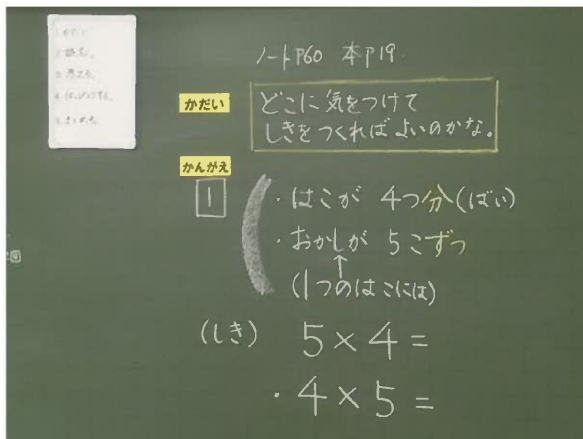 ノートP60 本P19
かだい
どこに気をつけて
しきをつくればよいのかな。
かんがえ
1
・はこが 4つ分(ばい)
・おかしが 5こずつ
↑
(1つのはこには)
(しき) 5×4=
・4×5=